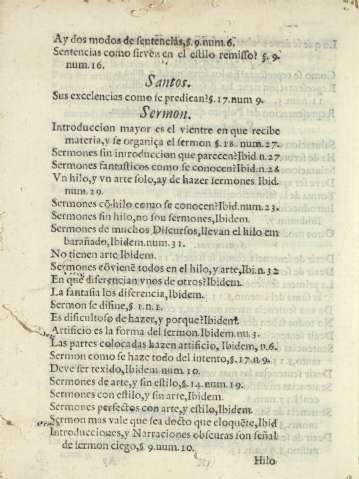 Ay dos modos de sentencias,§.9.num.6.
Sentencias como sirven en el estilo remisso? §.9.
num.16.
Santos.
Sus excelencias como se predican?§.17.num 9.
Sermon.
Introduccion mayor es el vientre en que recibe
materia,y se organiça el sermon §.18. num.27.
Sermones sin introduccion que parecen?Ibid.n.27.
Sermones fantasticos como se conocen?Ibid.n.28
Vn hilo,y vn arte solo,ay de hazer sermones Ibid.
num.29.
Sermones cõ hilo como se conocen?Ibid.num.23.
Sermones sin hilo,no son sermones,Ibidem.
Sermones de muchos Discursos,llevan el hilo em
barañado,Ibidem.num.31.
No tienen arte Ibidem.
Sermones cõvienẽ todos en el hilo,y arte,Ibi.n.32
En què diferencian vnos de otros?Ibidem.
La fantasia los diferencia,Ibidem.
Sermon se difine,§ 1.n.2.
Es dificultoso de hazer,y porque?Ibidem.
Artificio es la forma del sermon.Ibidem.nu.3.
Las partes colocadas hazen artificio, Ibidem, n.6.
Sermon como se haze todo del intento,§.17.n.9.
Deve ser texido,Ibidem.num.10.
Sermones de arte,y sin estilo,§.14.num.19.
Sermones con estilo,y sin arte,Ibidem.
Sermones perfectos con arte,y estilo,Ibidem.
Sermon mas vale que sea docto que eloquẽte,Ibid
Introducciones,y Narraciones obscuras son señal
de sermon ciego,§ 9.num.10.
Hilo